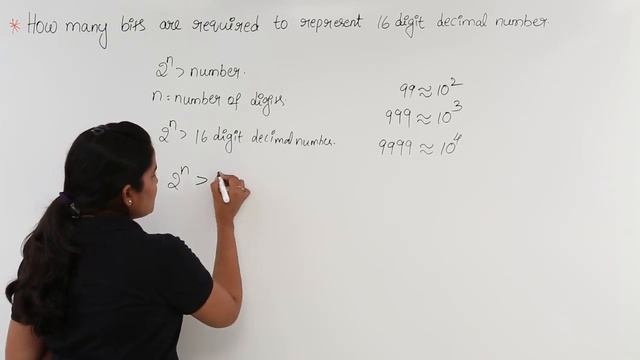 * How many bits are required to represent 16 digit decimal number.
2ⁿ > number.
n = number of digits.
2ⁿ > 16 digit decimal number.
2ⁿ >
99 ≈ 10²
999 ≈ 10³
9999 ≈ 10⁴